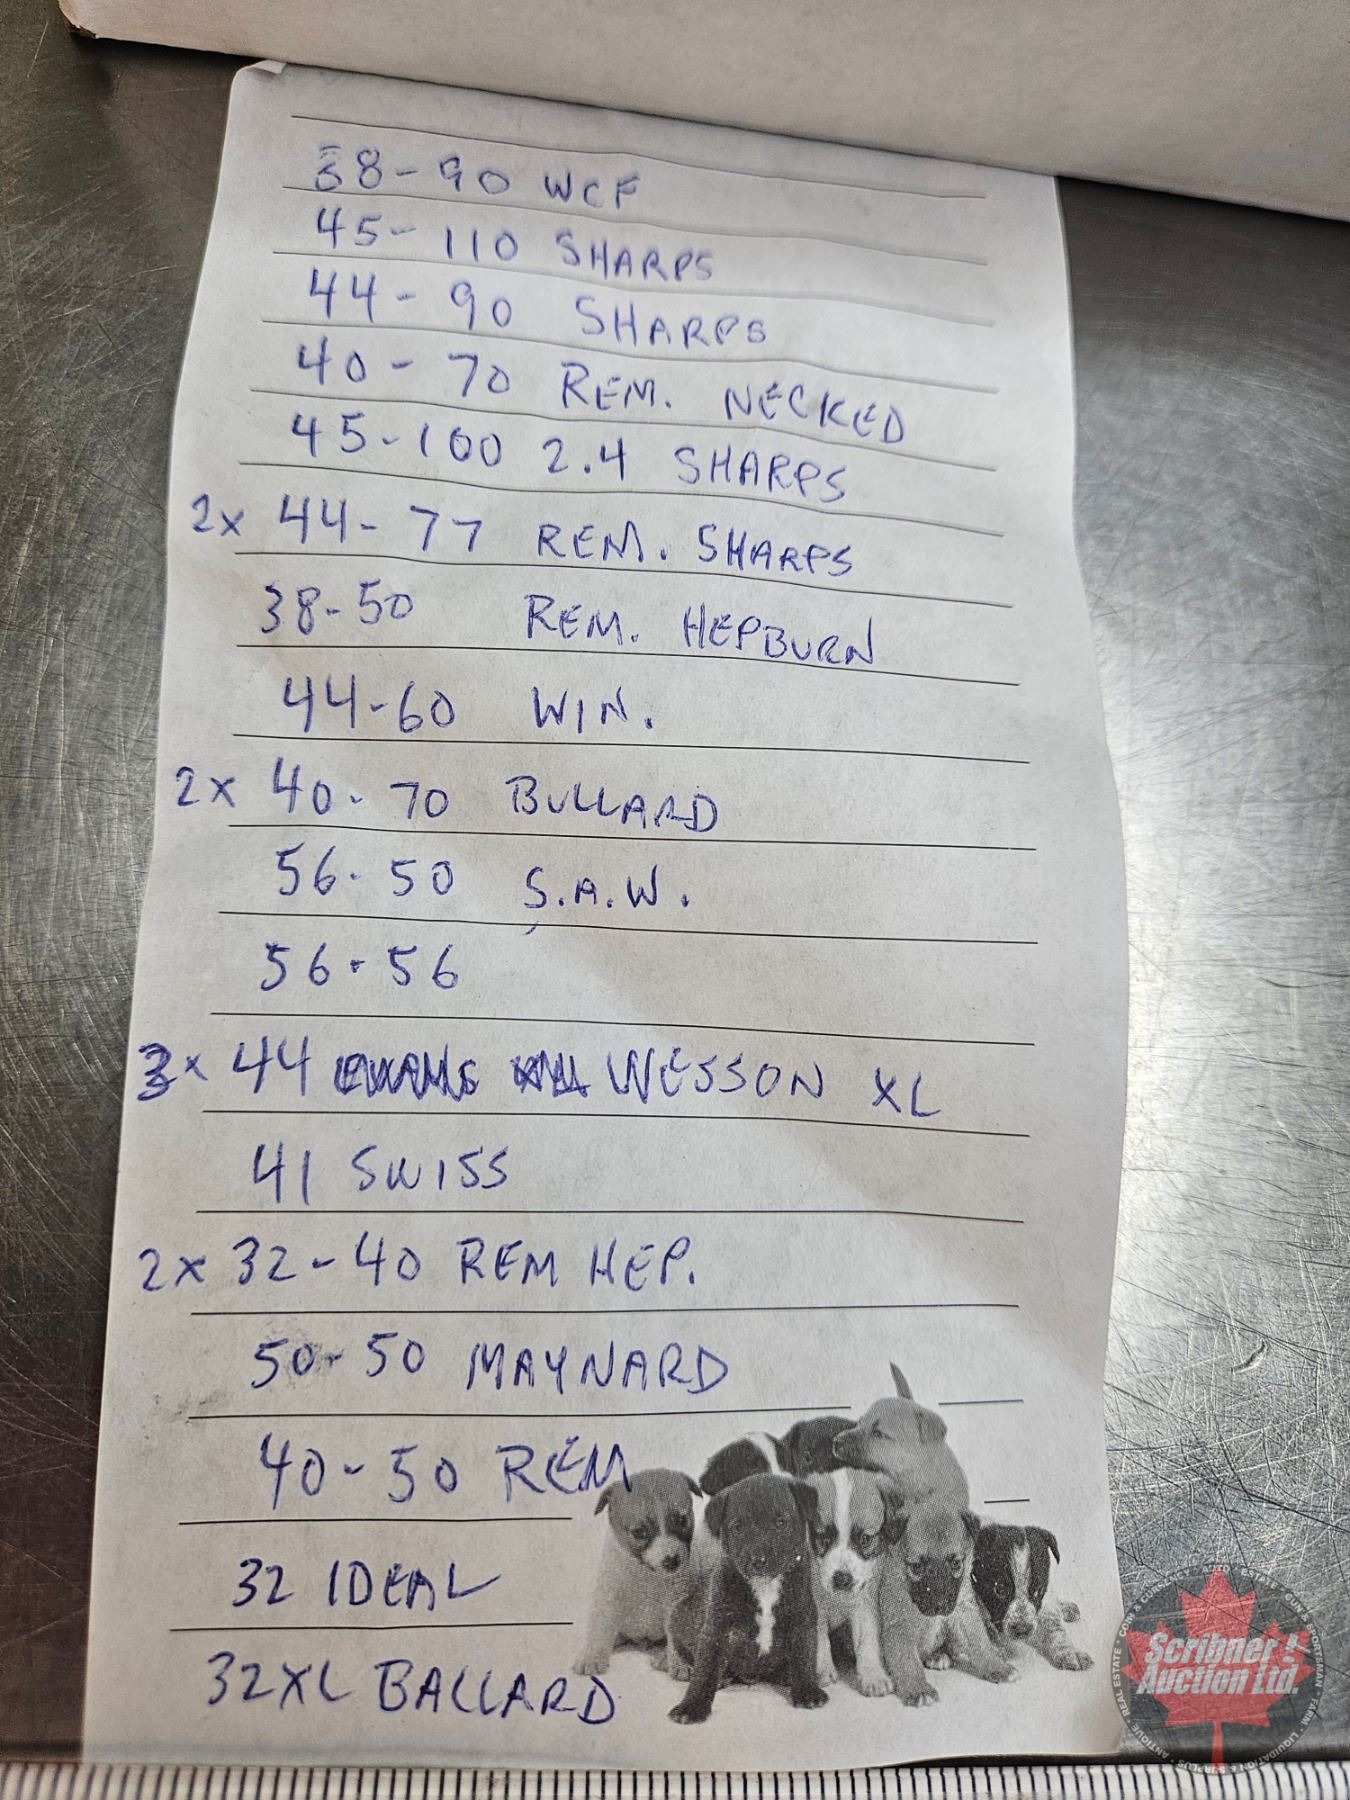 38-90 WCF
45-110 SHARPS
44-90 SHARPS
40-70 REM. NECKED
45-100 2.4 SHARPS
2x 44-77 REM. SHARPS
38-50 REM. HEPBURN
44-60 WIN.
2x 40-70 BULLARD
56-50 S.A.W.
56-56
3x 44 WESSON XL
41 SWISS
2x 32-40 REM HEP.
50-50 MAYNARD
40-50 REM
32 IDEAL
32XL BALLARD
Scribner!
Auction Ltd.